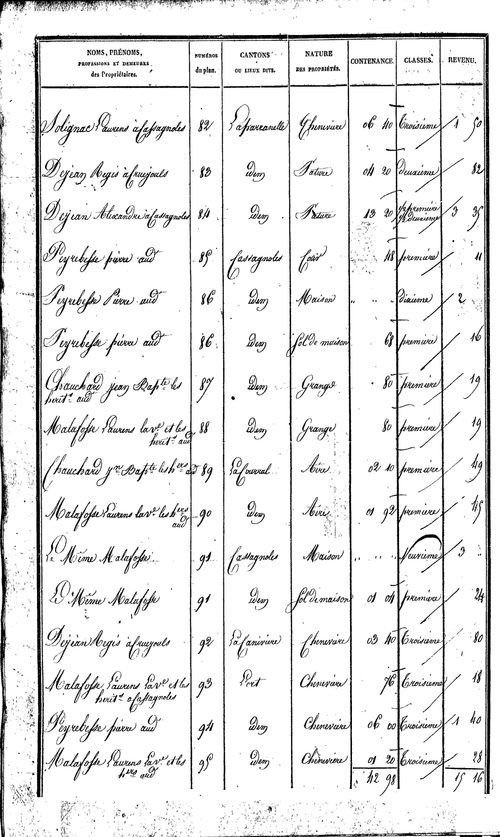 NOMS, PRÉNOMS, PROFESSIONS ET DEMEURE des Propriétaires. NUMÉROS du plan. CANTONS OU LIEUX DITS. NATURE DES PROPRIÉTÉS. CONTENANCE. CLASSES. REVENU.
Solignac Laurens à Cassagnoles 82 Chenevière 06 40 troisième 1 50
Dejean Regis 83 idem Pature 04 20 deuxième 82
Dejean Alexandre à Cassagnoles 84 idem Pature 13 20 première deuxième 3 35
Peyrebesse pierre aud 85 Cassagnoles Cour 48 première 11
Peyrebesse Pierre aud 86 idem Maison " " dixième 2
Peyrebesse pierre aud 86 idem Sol de maison 68 premiere 16
Chauchard jean Bapte les
herit. aud 87 idem Grange 80 premiere 19
Malafosse Laurens la ve et les
herit. aud 88 idem Grange 80 premiere 19
Chauchard jn Bapte les hers aud 89 Aire 02 10 première 49
Malafosse Laurens la ve les hers
aud 90 idem Aire 01 92 premiere 45
Le Même Malafosse 91 Cassagnoles Maison " " " neuvième 3 "
Le Même Malafosse 91 idem Sol de maison 01 04 première 24
Dejean Regis 92 La Canivière Chenevière 03 40 troisième 80
Malafosse Laurens la ve et les
herit. à Cassagnoles 93 Lort Chenevière 76 troisième 18
Peyrebesse pierre aud 94 idem Chenevière 06 00 troisième 1 40
Malafosse Laurens la ve et les
hers aud 95 idem Chenevière 01 20 troisième 28
42 98 15 16